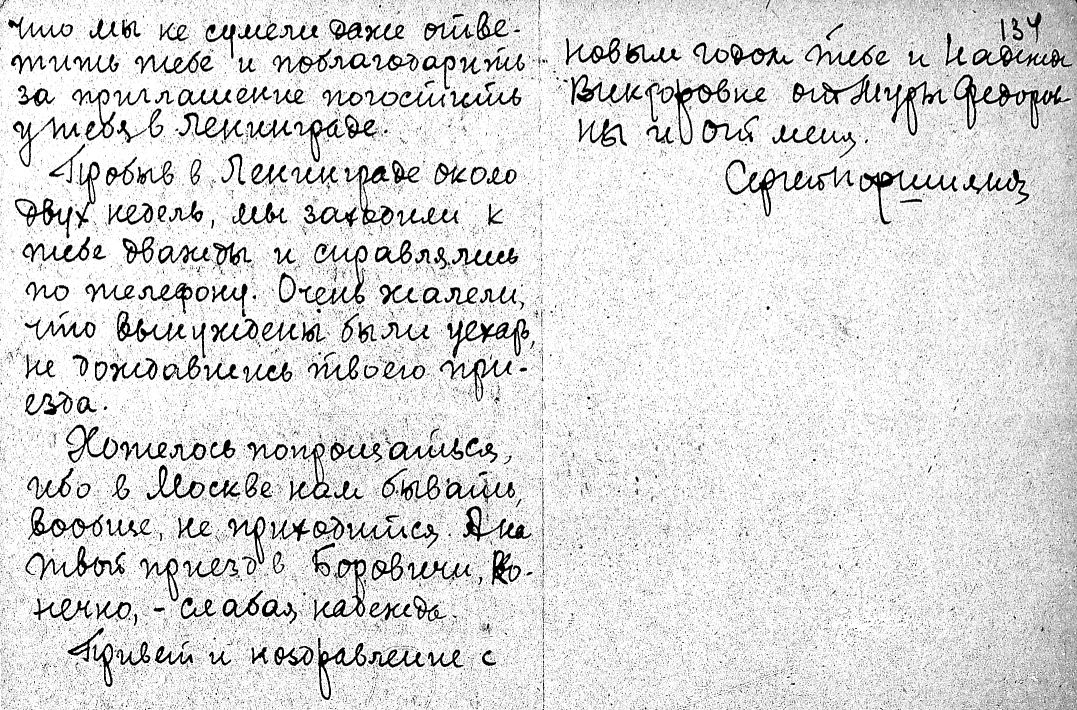 что мы не сумели даже отве-
тить тебе и поблагодарить
за приглашение погостить
у тебя в Ленинграде.
Пробыв в Ленинграде около
двух недель, мы заходили к
тебе дважды и справлялись
по телефону. Очень жалели,
что вынуждены были уехать,
не дождавшись твоего при-
езда.
Хотелось попрощаться,
ибо в Москве нам бывать,
вообще, не приходится. А на
твой приезд в Боровичи, ко-
нечно, - слабая надежда.
Привет и поздравление с
134
новым годом тебе и Надежде
Викторовне от Федоров-
ны и от меня.
Сергей